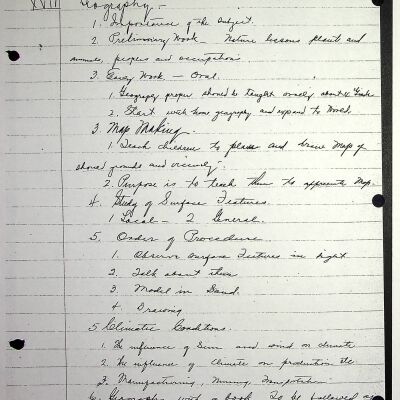 XVIII Geography.-
1. Importance of the subject.
2. Preliminary Work - Nature lessons plants and
animals, peoples and occupations
3. Early Work - Oral.
1. Geography proper should be taught orally about 4 Grade
2. Start with home geography and expand to World.
3. Map Making.
1 Teach children to place and draw maps of
school grounds and vicinity.
2. Purpose is to teach them to appreciate Map.
4. Study of Surface Features.
1 Local - 2 General.
5. Order of Procedure
1. Observe surface Features in sight
2. Talk about them
3. Model in Sand.
4. Drawing
5 Climatic Conditions.
1. The influence of Sun and wind on climate
2. The influence of Climate on production etc
3. Manufacturing, Mining, Transportation
6. Geography with a book to be followed